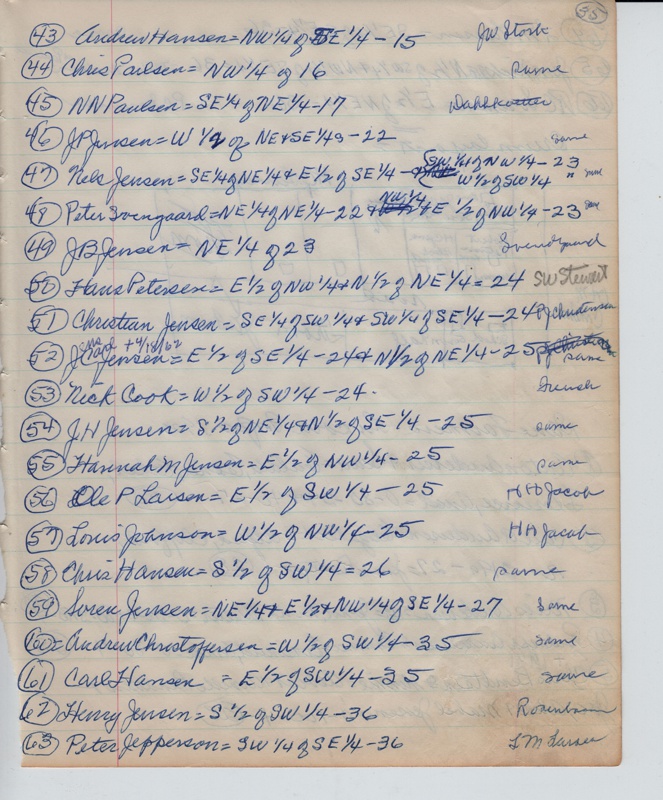 35
43 Andrew Hansen = NW 1/4 of SE 1/4 - 15 JW Stork
44 Chris Paulsen = NW 1/4 of 16 same
45 NN Paulsen = SE 1/4 of NE 1/4 - 17 Dahlkotter
46 JP Jensen = W 1/2 of NE & SE 1/4s - 22 same
47 Nels Jensen = SE 1/4 of NE 1/4 & E 1/2 of SE 1/4 - SW 1/4 of NW 1/4 - 23
W 1/2 of SW 1/4 " same
48 Peter Svengaard = NE 1/4 of NE 1/4 - 22 & NW 1/4 & E 1/2 of NW 1/4 - 23 same
49 JB Jensen = NE 1/4 of 23 Svendgaard
50 Hans Petersen = E 1/2 of NW 1/4 & N 1/2 of NE 1/4 = 24 SW Stewart
51 Christian Jensen = SE 1/4 of SW 1/4 & SW 1/4 of SE 1/4 - 24 PJ Christensen
52 JC Jensen = E 1/2 of SE 1/4 - 24 & N 1/2 of NE 1/4 - 25 same
53 Nick Cook = W 1/2 of SW 1/4 - 24.
54 JH Jensen = S 1/2 of NE 1/4 & N 1/2 of SE 1/4 - 25 same
55 Hannah M Jensen = E 1/2 of NW 1/4 - 25 same
56 Ole P Larsen = E 1/2 of SW 1/4 - 25 HH Jacob
57 Louis Johnson = W 1/2 of NW 1/4 - 25 HH Jacob
58 Chris Hansen = S 1/2 of SW 1/4 = 26 same
59 Soren Jensen = NE 1/4 & E 1/2 & NW 1/4 of SE 1/4 - 27 same
60 = Andrew Christoffersen = W 1/2 of SW 1/4 - 35 same
61 Carl Hansen = E 1/2 of SW 1/4 - 35 same
62 Henry Jensen = S 1/2 of SW 1/4 - 36 Rosenbaum
63 Peter Jepperson = SW 1/4 of SE 1/4 - 36 L M Larsen